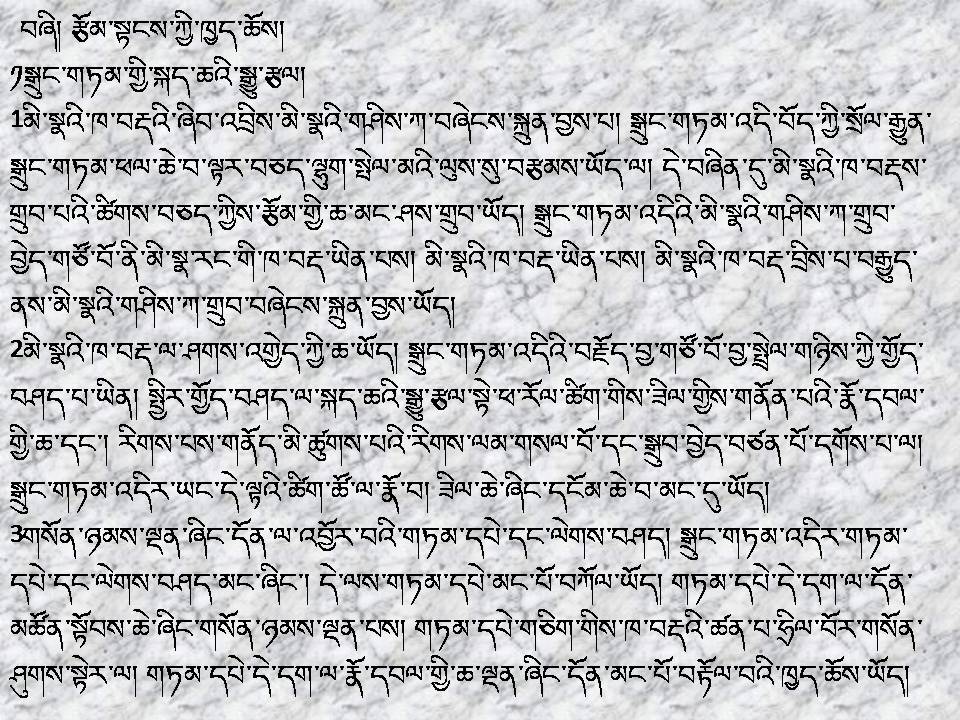 བཞི། རྩོམ་སྟངས་ཀྱི་ཁྱད་ཆོས།
༡སྒྲུང་གཏམ་གྱི་སྐད་ཆའི་སྒྱུ་རྩལ།
1མི་སྣའི་ཁ་བརྡའི་ཞིབ་འབྲིས་མི་སྣའི་གཤིས་ཀ་བཞེངས་སྐྲུན་བྱས་པ། སྒྲུང་གཏམ་འདི་བོད་ཀྱི་སྲོལ་རྒྱུན་
སྒྲུང་གཏམ་ཕལ་ཆེ་བ་ལྟར་བཅད་ལྷུག་སྤེལ་མའི་ལུས་སུ་བརྩམས་ཡོད་ལ། དེ་བཞིན་དུ་མི་སྣའི་ཁ་བརྡས་
གྲུབ་པའི་ཚིགས་བཅད་ཀྱིས་རྩོམ་གྱི་ཆ་མང་ཤས་གྲུབ་ཡོད། སྒྲུང་གཏམ་འདིའི་མི་སྣའི་གཤིས་ཀ་གྲུབ་
བྱེད་གཙོ་བོ་ནི་མི་སྣ་རང་གི་ཁ་བརྡ་ཡིན་པས། མི་སྣའི་ཁ་བརྡ་ཡིན་པས། མི་སྣའི་ཁ་བརྡ་བྲིས་པ་བརྒྱུད་
ནས་མི་སྣའི་གཤིས་ཀ་གྲུབ་བཞེངས་སྐྲུན་བྱས་ཡོད།
2མི་སྣའི་ཁ་བརྡ་ལ་ཤགས་འགྱེད་ཀྱི་ཆ་ཡོད། སྒྲུང་གཏམ་འདིའི་བརྗོད་བྱ་གཙོ་བོ་བྱ་སྤྲེལ་གཉིས་ཀྱི་གྱོད་
བཤད་པ་ཡིན། སྤྱིར་གྱོད་བཤད་ལ་སྐད་ཆའི་སྒྱུ་རྩལ་སྟེ་ཕ་རོལ་ཚིག་གིས་ཟིལ་གྱིས་གནོན་པའི་རྣོ་དབལ་
གྱི་ཆ་དང་། རིགས་པས་གནོད་མི་ཚུགས་པའི་རིགས་ལམ་གསལ་བོ་དང་སྒྲུབ་བྱེད་བཙན་པོ་དགོས་པ་ལ།
སྒྲུང་གཏམ་འདིར་ཡང་དེ་ལྟའི་ཚིག་ཚོ་ལ་རྣོ་བ། ཟིལ་ཆེ་ཞིང་དངོམ་ཆེ་བ་མང་དུ་ཡོད།
3གསོན་ཉམས་ལྡན་ཞིང་དོན་ལ་འབྱོར་བའི་གཏམ་དཔེ་དང་ལེགས་བཤད། སྒྲུང་གཏམ་འདིར་གཏམ་
དཔེ་དང་ལེགས་བཤད་མང་ཞིང་། དེ་ལས་གཏམ་དཔེ་མང་པོ་བཀོལ་ཡོད། གཏམ་དཔེ་དེ་དག་ལ་དོན་
མཚོན་སྟོབས་ཆེ་ཞིང་གསོན་ཉམས་ལྡན་པས། གཏམ་དཔེ་གཅིག་གིས་ཁ་བརྡའི་ཚན་པ་ཧྲིལ་བོར་གསོན་
ཤུགས་སྟེར་ལ། གཏམ་དཔེ་དེ་དག་ལ་རྣོ་དབལ་གྱི་ཆ་ལྡན་ཞིང་དོན་མང་པོ་བརྟོལ་བའི་ཁྱད་ཆོས་ཡོད།